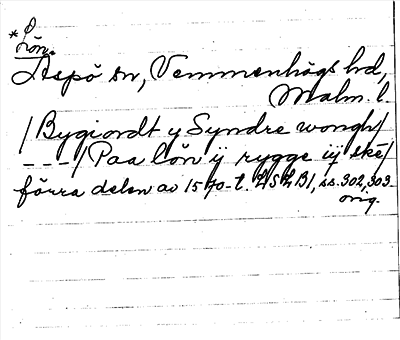 * Lön.
Aspö sn, Vemmenhögs hd,
Malm. l.
/ Bygiordt y Syndre wongh /
--- / Paa lön ÿ rygge iÿ ske /
förra delen av 1570-t. LSLB1, ss. 302, 303.
orig.